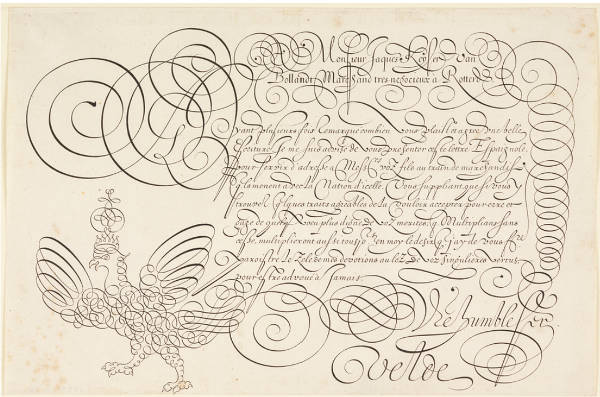 A Monsieur Jaques Keyser van
Bollandt Marchand tres negocieux a Rotterd.
Ayant plusieurs fois remarqué combien vous plaist a gré d'une belle
escriture, je me suis advisé de vous presenter cette lettre Espagnole,
pour servir d'adresse à Mess.rs voz fils au train de marchandise,
la Nation d'icelle. Vous suppliant que si vous y
trouvez quelques traits agreables de la vouloir accepter pour
gage de plus digne de voz merites, q. Multiplians sans
cesse, multiplieront aussi tousjo.rs en moy le desir q. J'ay de vous fre
paroistre le Zele de mes devotions au lez de voz singulieres vertus,
pour estre advoué à jamais.
Vre humble ser.
velde